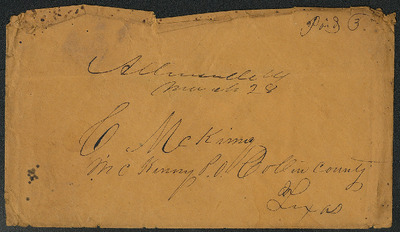 Paid 3
March 28
C McKinney
McKinney P.O Collin County
Texas